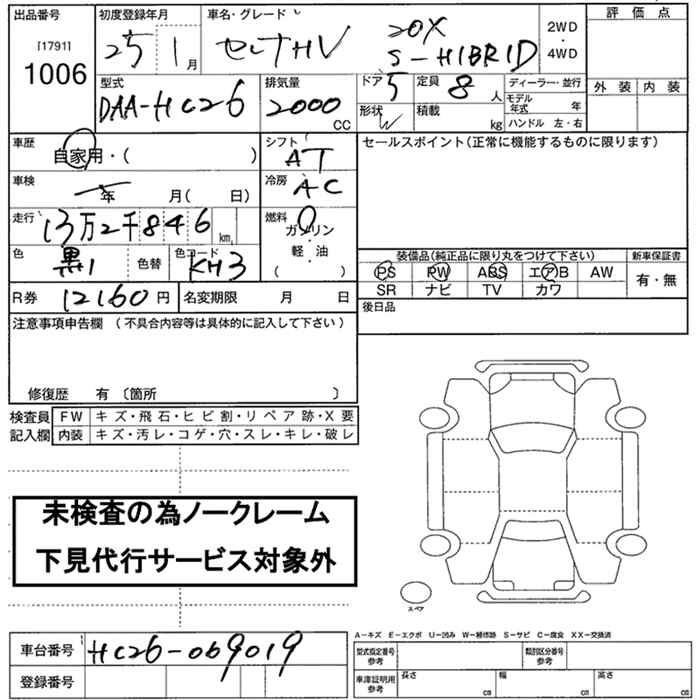 出品番号 初度登録年月 車名・グレード 評価点
[1791] 25 1月 セレナHV 20X 2WD
1006 S-HIBRID ・
4WD
型式 排気量 ドア 定員 ディーラー・並行 外装 内装
DAA-HC26 2000 CC 5 8人 モデル年式 年
形状 W 積載 kg ハンドル 左・右
車歴 シフト セールスポイント(正常に機能するものに限ります)
自家用・( ) AT
車検 年 月( 日) 冷房 AC
走行 13万2千846 km 燃料 ガソリン
軽・油
( )
色 黒1 色替 色コード KH3
装備品(純正品に限り丸をつけて下さい) 新車保証書
PS PW ABS エアB AW 有・無
SR ナビ TV カワ
R券 12160円 名変期限 月 日 後日品
注意事項申告欄 (不具合内容等は具体的に記入して下さい)
修復歴 有 〔箇所 〕
検査員 FW キズ・飛石・ヒビ割・リペア跡・X要
記入欄 内装 キズ・汚レ・コゲ・穴・スレ・キレ・破レ
未検査の為ノークレーム
下見代行サービス対象外
スペア
A-キズ E-エクボ U-凹み W-補修跡 S-サビ C-腐食 XX-交換済
車台番号 HC26-069019 型式指定番号 参考 類別区分番号 参考
登録番号 車庫証明用 参考 長さ cm 幅 cm 高さ cm